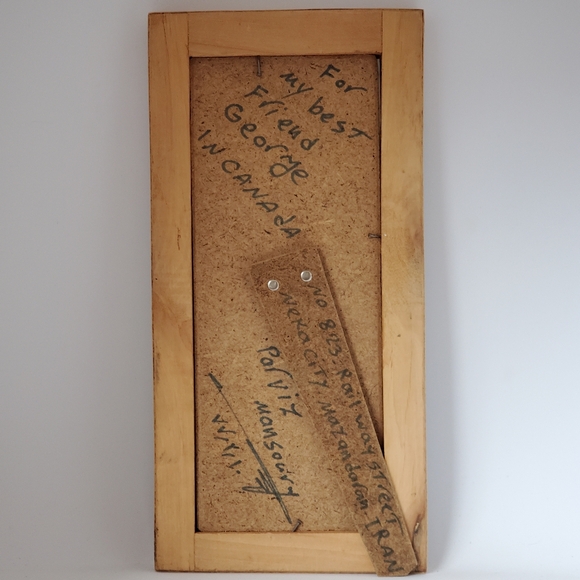 For
my best
Friend
George
IN CANADA
No 823. Railway street
Neka City Mazandaran IRAN
Parviz
Mansoury